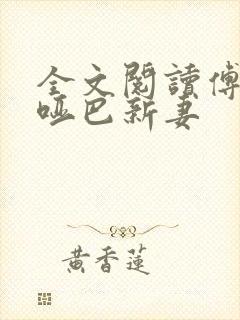 全文閱讀傅
啞巴新妻
黃香蓮